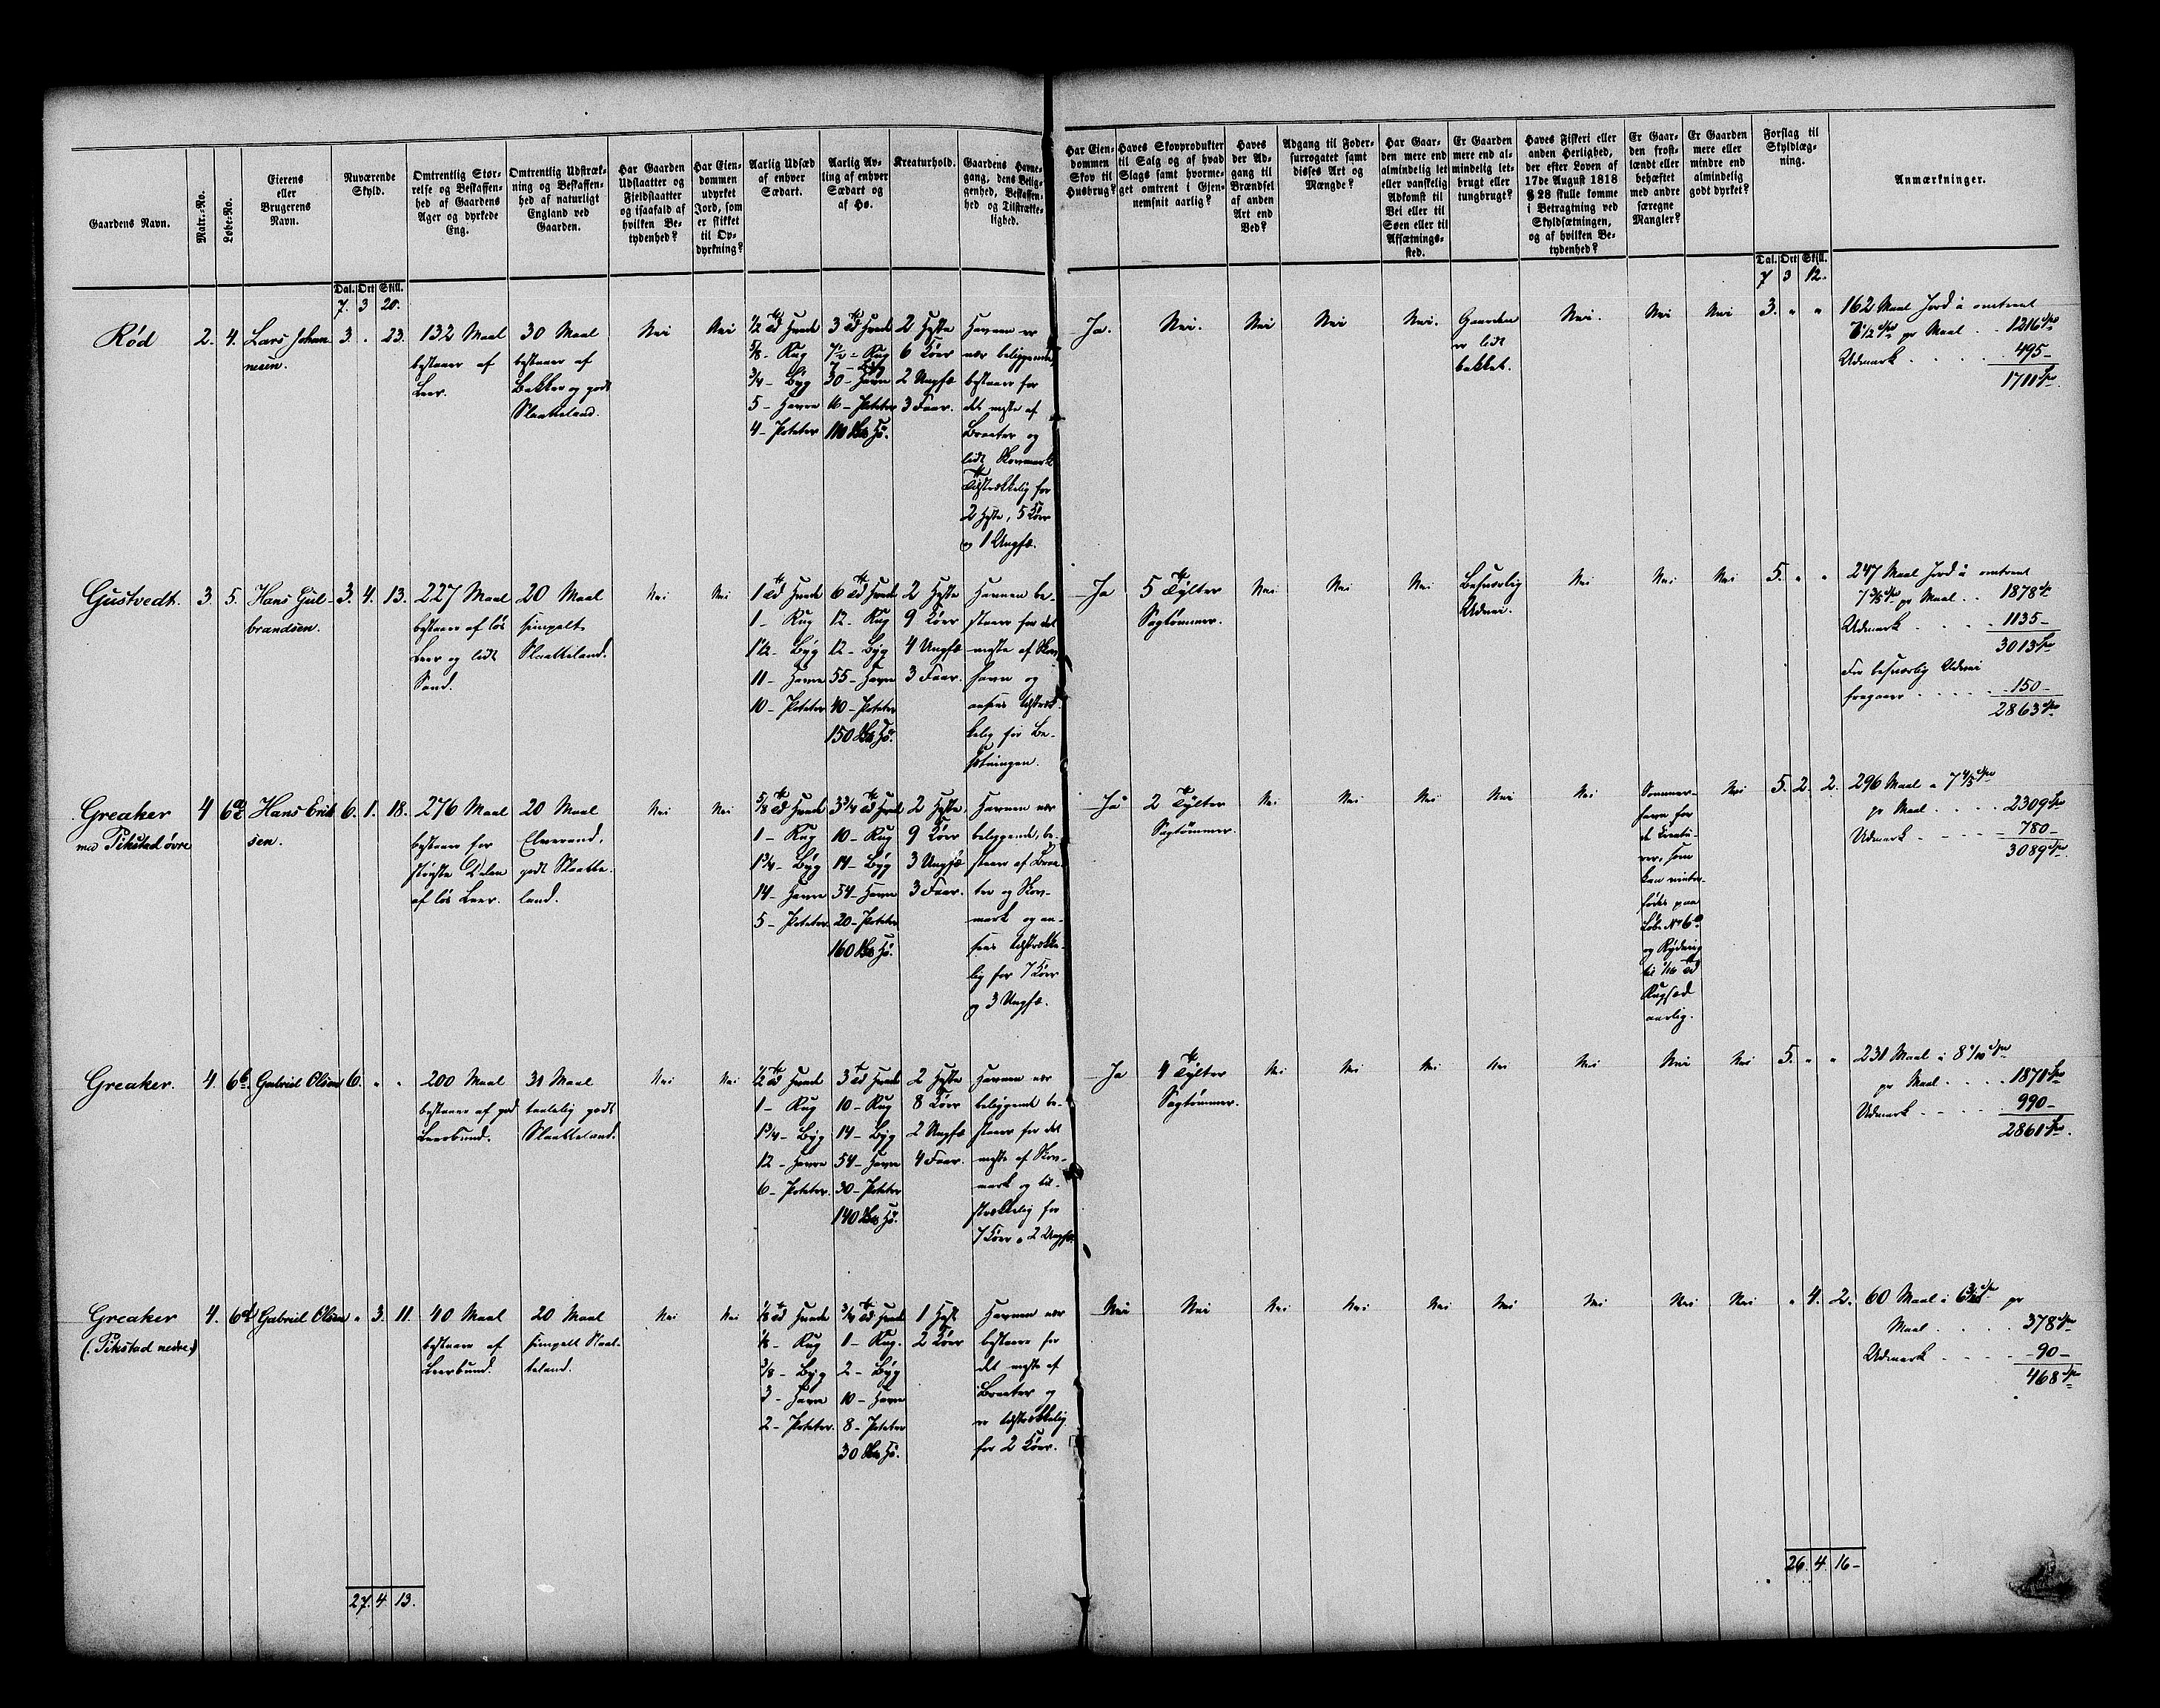 Gaardens Navn.
Matr.-No.
Løbe-No.
Eierens
eller
Brugerens
Navn.
Nuværende
Skyld.
Dal. Ort Skill.
Omtrentlig Stør-
relse og Beskaffen-
hed af Gaardens
Ager og dyrkede
Eng.
Omtrentlig Udstræk-
ning og Beskaffen-
hed af naturligt
England ved
Gaarden.
Har Gaarden
Udslaatter og
Fjeldslaatter
og isaafald af
hvilken Be-
tydenhed?
Har Eien-
dommen
udyrket
Jord, som
er skikket
til Op-
dyrkning?
Aarlig Udsæd
af enhver
Sædart.
Aarlig Av-
ling af enhver
Sædart og
af Hø.
Kreaturhold.
Gaardens Havne-
gang, dens Belig-
genhed, Beskaffen-
hed og Tilstrække-
lighed.
Har Eien-
dommen
Skov til
Husbrug?
Haves Skovprodukter
til Salg og af hvad
Slags samt hvorme-
get omtrent i Gjen-
nemsnit aarlig?
Haves
der Ad-
gang til
Brændsel
af anden
Art end
Ved?
Adgang til Foder-
surrogatet samt
disses Art og
Mængde?
Har Gaar-
den mere end
almindelig let
eller vanskelig
Adkomst til
Vei eller til
Søen eller til
Afsætnings-
sted.
Er Gaarden
mere end al-
mindelig let-
brugt eller
tungbrugt?
Haves Fiskeri eller
anden Herlighed,
der efter Loven af
17de August 1818
§ 28 skulle komme
i Betragtning ved
Skyldsætningen,
og af hvilken Be-
tydenhed?
Er Gaar-
den frost-
lændt eller
behæftet
med andre
særegne
Mangler?
Er Gaarden
mere eller
mindre end
almindelig
godt dyrket?
Forslag til
Skyldlæg-
ning.
Dal. Ort Skill.
Anmærkninger.
7. 3 20.
7 3 12.
Rød
2. 4.
Lars Johan-
nesen.
3. . 23.
132 Maal
bestaaer af
Leer.
30 Maal
bestaaer af
Bakker og godt
Slaatteland.
Nei
Nei
1/2 Td Hvede
5/8 - Rug
3/4 - Byg
5 - Havre
4 - Poteter
3 Td Hvede
7 1/2 - Rug
7 - Byg
30 - Havre
16 - Poteter
110 Hø.
2 Heste
6 Køer
2 Ungfæ
3 Faar.
Havnen er
nær beliggende,
bestaaer for
det meste af
Braater og
lidt Skovmark
Tilstrækkelig for
2 Heste, 5 Køer
og 1 Ungfæ.
Ja.
Nei.
Nei
Nei
Nei.
Gaarden
er lidt
bakket.
Nei.
Nei
Nei
3. " "
162 Maal Jord à omtrent
7 1/2 Spd pr Maal . . 1216 Spd
Udmark . . . . . 495 -
1711 Spd.
Gustvedt.
3. 5.
Hans Gul-
brandsen.
3. 4. 13.
227 Maal
bestaaer af løs
Leer og lidt
Sand.
20 Maal
simpelt
Slaatteland.
Nei
Nei
1 Td Hvede
1 - Rug
1 1/2 - Byg
11 - Havre
10 - Poteter
6 Td Hvede
12 - Rug
12 - Byg
55 - Havre
40 - Poteter
150 Hø.
2 Heste
9 Køer
4 Ungfæ
3 Faar.
Havnen be-
staaer for det
meste af Skov-
havn og
ansees tilstræk-
kelig for Be-
sætningen.
Ja
5 Tylter
Sagtømmer.
Nei
Nei
Nei
Besværlig
Udvei.
Nei
Nei
Nei
5. " "
247 Maal Jord à omtrent
7 3/5 Spd pr Maal . . 1878 Spd
Udmark . . . . . 1135 -
3013 Spd
For besværlig Udvei
fragaaer . . . . . 150 -
2863 Spd
Greaker
med Pikstad øvre
4 6a
Hans Erik-
sen.
6. 1. 18.
276 Maal
bestaaer for
største Delen
af løs Leer.
20 Maal
Elverand,
godt Slaatte-
land.
Nei
Nei
5/8 Td Hvede
1 - Rug
1 3/4 - Byg
14 - Havre
5 - Poteter.
3 3/4 Td Hvede
10 - Rug
14 - Byg
54 - Havre
20 - Poteter
160 Hø.
2 Heste.
9 Køer
3 Ungfæ
3 Faar.
Havnen nær
beliggende, be-
staaer af Braa-
ter og Skov-
mark og an-
sees tilstrække-
lig for 7 Køer
og 3 Ungfæ.
Ja
2 Tylter
Sagtømmer.
Nei
Nei
Nei
Nei
Nei
Sommer-
havn for
de Kreatu-
rer, som
kan vinter-
fødes paa
Løbe No 6
og Rydning
til 1/16 Td
Rugsæd
aarlig.
Nei
5. 2. 2.
296 Maal à 7 4/5 Spd
pr Maal . . . . 2309 Spd
Udmark . . . . . 780 -
3089 Spd.
Greaker.
4. 6b.
Gabriel Olsen
6. " "
200 Maal
bestaaer af god
Leerbund.
31 Maal
taalelig godt
Slaatteland.
Nei
Nei
1/2 Td Hvede
1 - Rug
1 3/4 - Byg
12 - Havre
6 - Poteter.
3 Td Hvede
10 - Rug
14 - Byg
54 - Havre
30 - Poteter
140 Hø.
2 Heste
8 Køer
2 Ungfæ
4 Faar.
Havnen nær
beliggende be-
staaer for det
meste af Skov-
mark og til-
strækkelig for
7 Køer og 2 Ungfæ.
Ja
4 Tylter
Sagtømmer.
Nei
Nei
Nei
Nei
Nei
Nei
Nei
5. " "
231 Maal à 8 1/10 Spd
pr Maal . . . . 1871 Spd
Udmark . . . . . 990 -
2861 Spd.
Greaker
(Pikstad nedre)
4. 6d
Gabriel Olsen
" 3. 11.
40 Maal
bestaaer af
Leerbund.
20 Maal
simpelt Slaat-
teland.
Nei
Nei
1/8 Td Hvede
1/8 - Rug
3/8 - Byg
3 - Havre
2 - Poteter.
3/4 Td Hvede
1 - Rug.
2 - Byg
10 - Havre
8 - Poteter
30 Hø.
1 Hest
2 Køer
Havnen nær
bestaaer for
det meste af
Braater og
er tilstrækkelig
for 2 Køer.
Nei
Nei
Nei
Nei
Nei
Nei
Nei
Nei
Nei
" 4. 2.
60 Maal à 6 3/10 Spd pr
Maal . . . . . 378 Spd
Udmark . . . . . 90 -
468 Spd
27. 4 13.
26. 4. 16 -